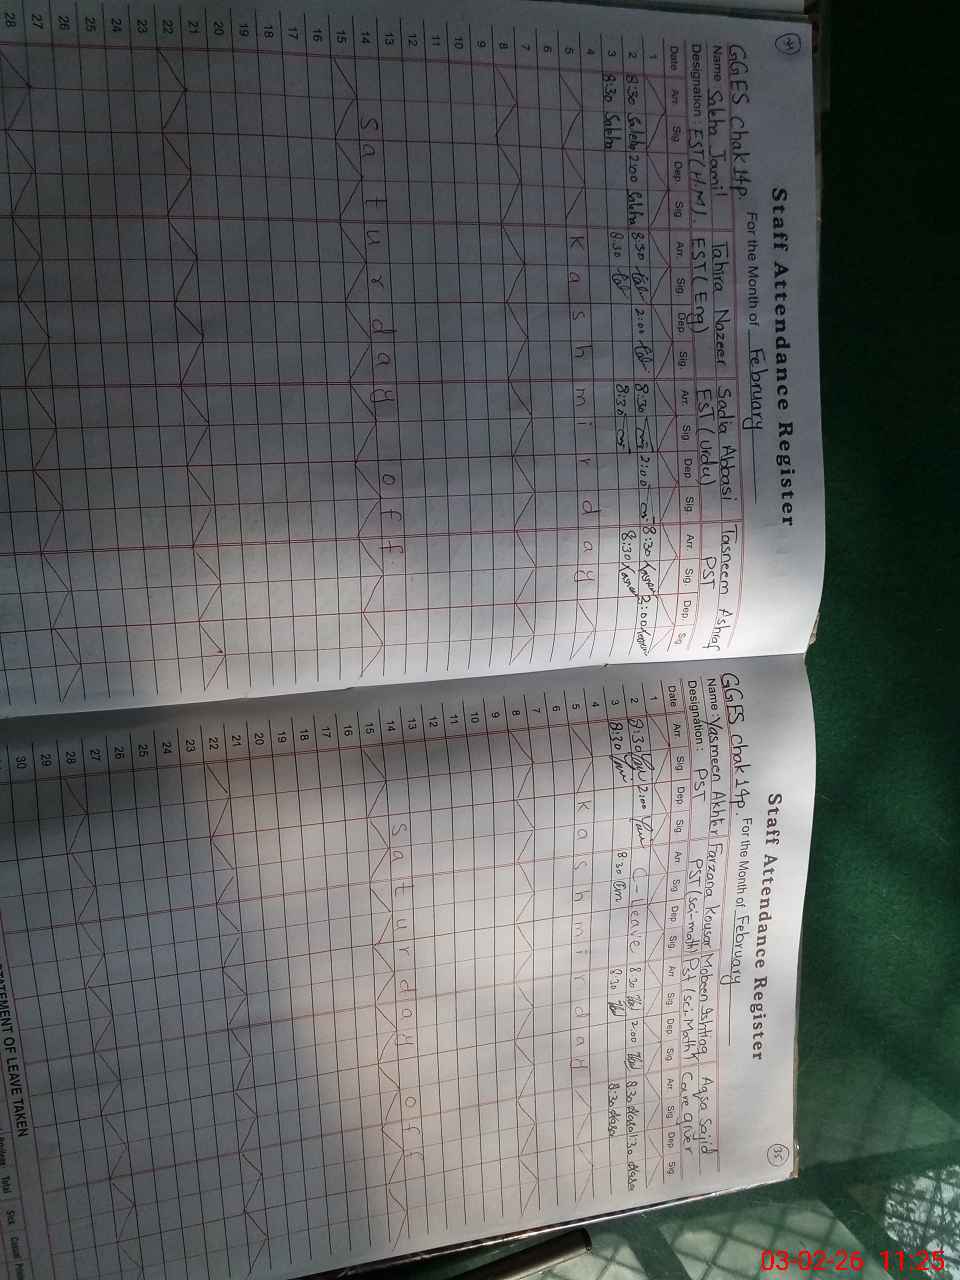 34
Staff Attendance Register
GGES chak 14p. For the Month of February
Name Saleha Jamil Tahira Nazeer Sadia Abbasi Tasneem Ashraf
Designation: EST(H.M). EST(Eng) EST(Urdu) PST
Date Arr. Sig Dep. Sig. Arr. Sig. Dep. Sig. Arr. Sig. Dep. Sig. Arr. Sig. Dep. Sig
1
2 8:30 Saleha 2:00 Saleha 8:30 2:00 8:30 2:00 8:30 2:00
3 8:30 Saleha 8:30 8:30 8:30
4
5 Kashmir day
6
7
8
9
10
11
12
13
14 Saturday off
15
16
17
18
19
20
21
22
23
24
25
26
27
28
35
Staff Attendance Register
GGES chak 14p. For the Month of February
Name Yasmeen Akhter Farzana Kousar Mobeen Ishtiaq Aqsa Sajid
Designation: PST PST(sci-math) Pst (sci.Math) Care giver
Date Arr. Sig Dep Sig Arr. Sig Dep Sig Arr. Sig Dep. Sig Arr. Sig Dep Sig
1
2 8:30 2:00 C-Leave 8:30 2:00 8:30 1:30
3 8:30 8:30 8:30 8:30
4
5 Kashmir day
6
7
8
9
10
11
12
13
14 Saturday off
15
16
17
18
19
20
21
22
23
24
25
26
27
28
29
30
STATEMENT OF LEAVE TAKEN
Total Sick Casual
03-02-26 11:25